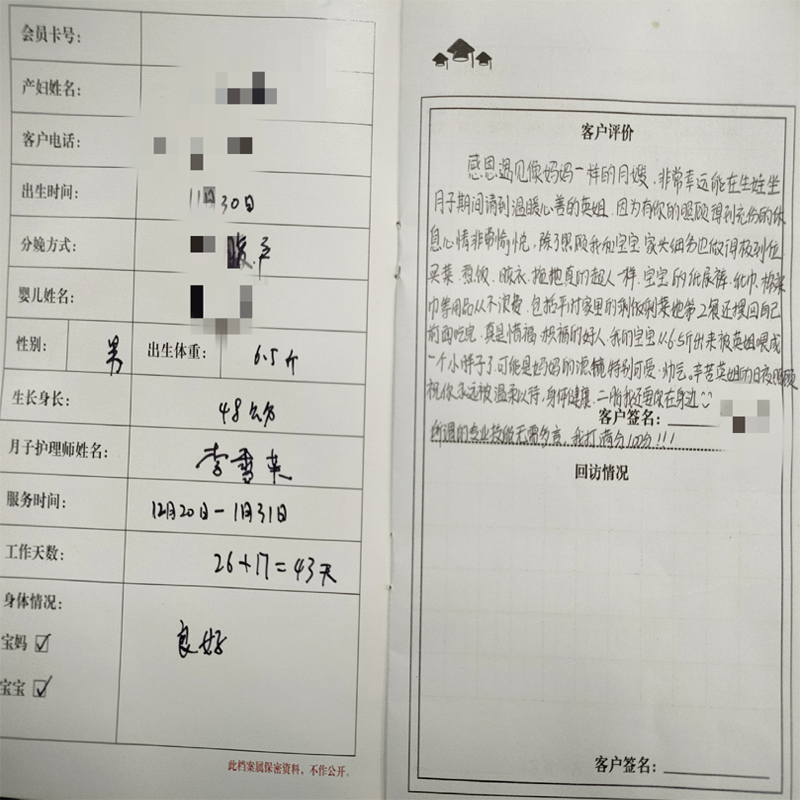 会员卡号:
产妇姓名:
客户电话:
出生时间: 11 30日
分娩方式: 腹产
婴儿姓名:
性别: 男 出生体重: 6.5斤
生长身长: 48公分
月子护理师姓名: 李雪英
服务时间: 12月20日-1月31日
工作天数: 26+17=43天
身体情况: 良好
宝妈 ☑
宝宝 ☑
此档案属保密资料,不作公开。
客户评价
感恩遇见像妈妈一样的月嫂,非常幸运能在生娃坐
月子期间请到温暖心善的英姐,因为有你的照顾得到充份的休
息心情非常愉悦,除了照顾我和宝宝,家头细务也做得极到位
买菜、煲饭、晾衣、拖地真的超人一样,宝宝的纸尿裤、纸巾、棉柔
巾等用品从不浪费,包括平时家里的剩饭剩菜她第2餐还搜回自己
前面吃完,真是惜福、积福的好人,我们宝宝从6.5斤出来被英姐喂成
一个小胖子了,可能是妈妈的滤镜特别可爱、帅气,辛苦英姐的日夜照顾
祝你永远被温柔以待,身体健康,二胎我还要你在身边
客户签名:
所谓的专业技能无需多言,我打满分100分!!!
回访情况
客户签名: